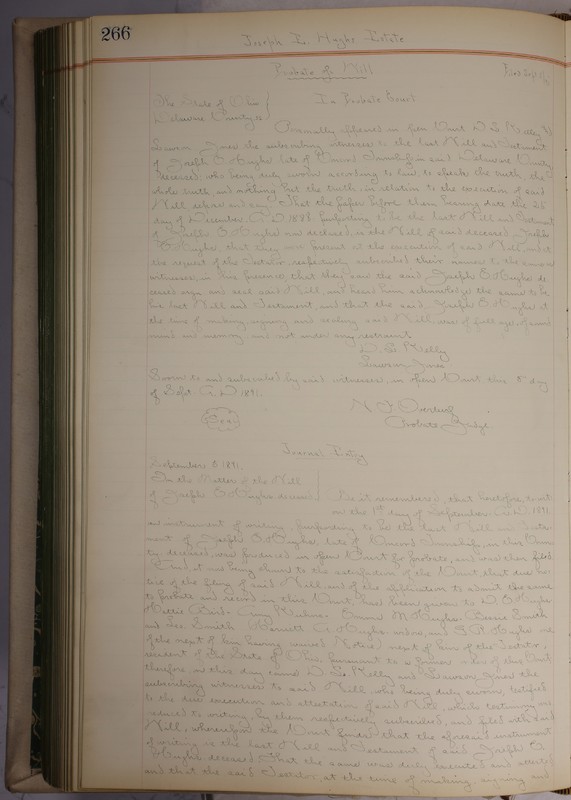 266
Joseph E. Hughs Estate
Probate of Will
Filed Sept
The State of Ohio
Delaware County ss
In Probate Court
Personally appeared in open Court D. E. Kelly &
Jones the subscribing witnesses to the last Will and Testament
of Joseph E Hughs late of Township in said Delaware County
deceased, who being duly sworn according to law to speak the truth, the
whole truth and nothing but the truth, in relation to the execution of said
Will depose and say: That the paper before them bearing date the 26
day of December A.D. purporting to be the last Will and Testament
of Joseph E Hughs now deceased, is the Will of said deceased, Joseph
E Hughs, that they were present at the execution of said Will, and at
the request of the testator, respectively subscribed their names to the same as
witnesses, in his presence, that they saw the said Joseph E Hughs de
ceased sign and seal said Will, and heard him acknowledge the same to be
his last Will and Testament, and that the said Joseph E Hughs at
the time of making, signing and sealing said Will, was of full age, of sound
mind and memory and not under any restraint
D. E. Kelly
Jones
Sworn to and subscribed by said witnesses, in open Court this 8 day
of Sept A.D. 1891.
Seal
N. F. Overturf
Probate Judge
Journal Entry
September 8 1891.
In the Matter of the Will
of Joseph E Hughs deceased
Be it remembered, that heretofore to wit
on the 1st day of September A.D. 1891
an instrument of writing, purporting to be the last Will and Testa-
ment of Joseph E Hughs, late of Township, in this Coun
ty deceased, was produced in open Court for probate, and was then filed
And it now being shown to the satisfaction of the Court that due no-
tice of the filing of said Will, and of the application to admit the same
to probate and record in this Court, has been given to D E Hughs
Hattie Emma M Hughs. Bessie Smith
and Smith A. Hughs and S. P. Hughs
of the next of kin having waived Notice, next of kin of the Testator,
resident of the State of Ohio, pursuant to a former order of this Court
therefore on this day came D. E. Kelly and Jones the
subscribing witnesses to said Will, who being duly sworn, testified
to the due execution and attestation of said Will, which testimony was
reduced to writing, by them respectively subscribed, and filed with said
Will; whereupon the Court finds that the aforesaid instrument
of writing is the last Will and Testament of said Joseph E
Hughs deceased. That the same was duly executed and attested
and that the said Testator, at the time of making, signing and